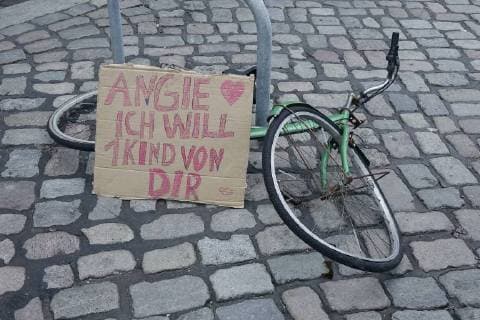 ANGIE ♥
ICH WILL
1 KIND VON
DIR